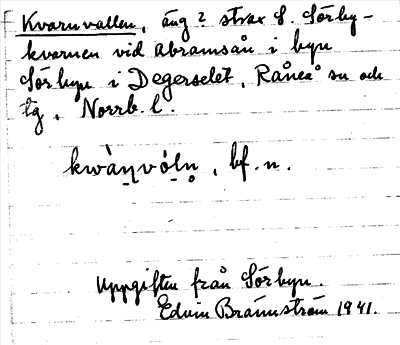 Kvarnvallen, äng? strax S. Sörby-
kvarnen vid Abramsån i byn
Sörbyn i Degerselet, Råneå sn och
tg, Norrb. l.
kwàṇvóḷn̥, bf. n.
Uppgiften från Sörbyn.
Edvin Brännström 1941.